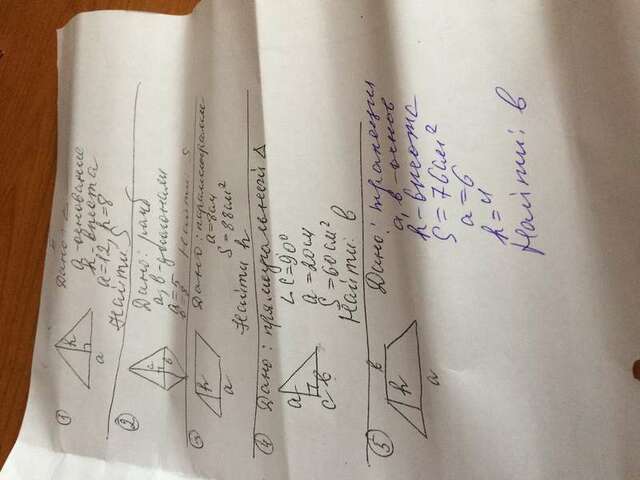 ① Дано: Δ
a-основание
h-высота
a=12, h=8
Найти: S
h
a
② Дано: ромб
a, b-диагонали
a=5
b=8
Найти: S
a
b
③ Дано: параллелограмм
a=8см
S=88см²
Найти h
h
a
④ Дано: прямоугольный Δ
∠C=90°
a=20см
S=60см²
Найти: b
a
c b
⑤ Дано: трапеция
a, b-основ
h-высота
S=76см²
a=6
h=4
Найти: b
b
h
a